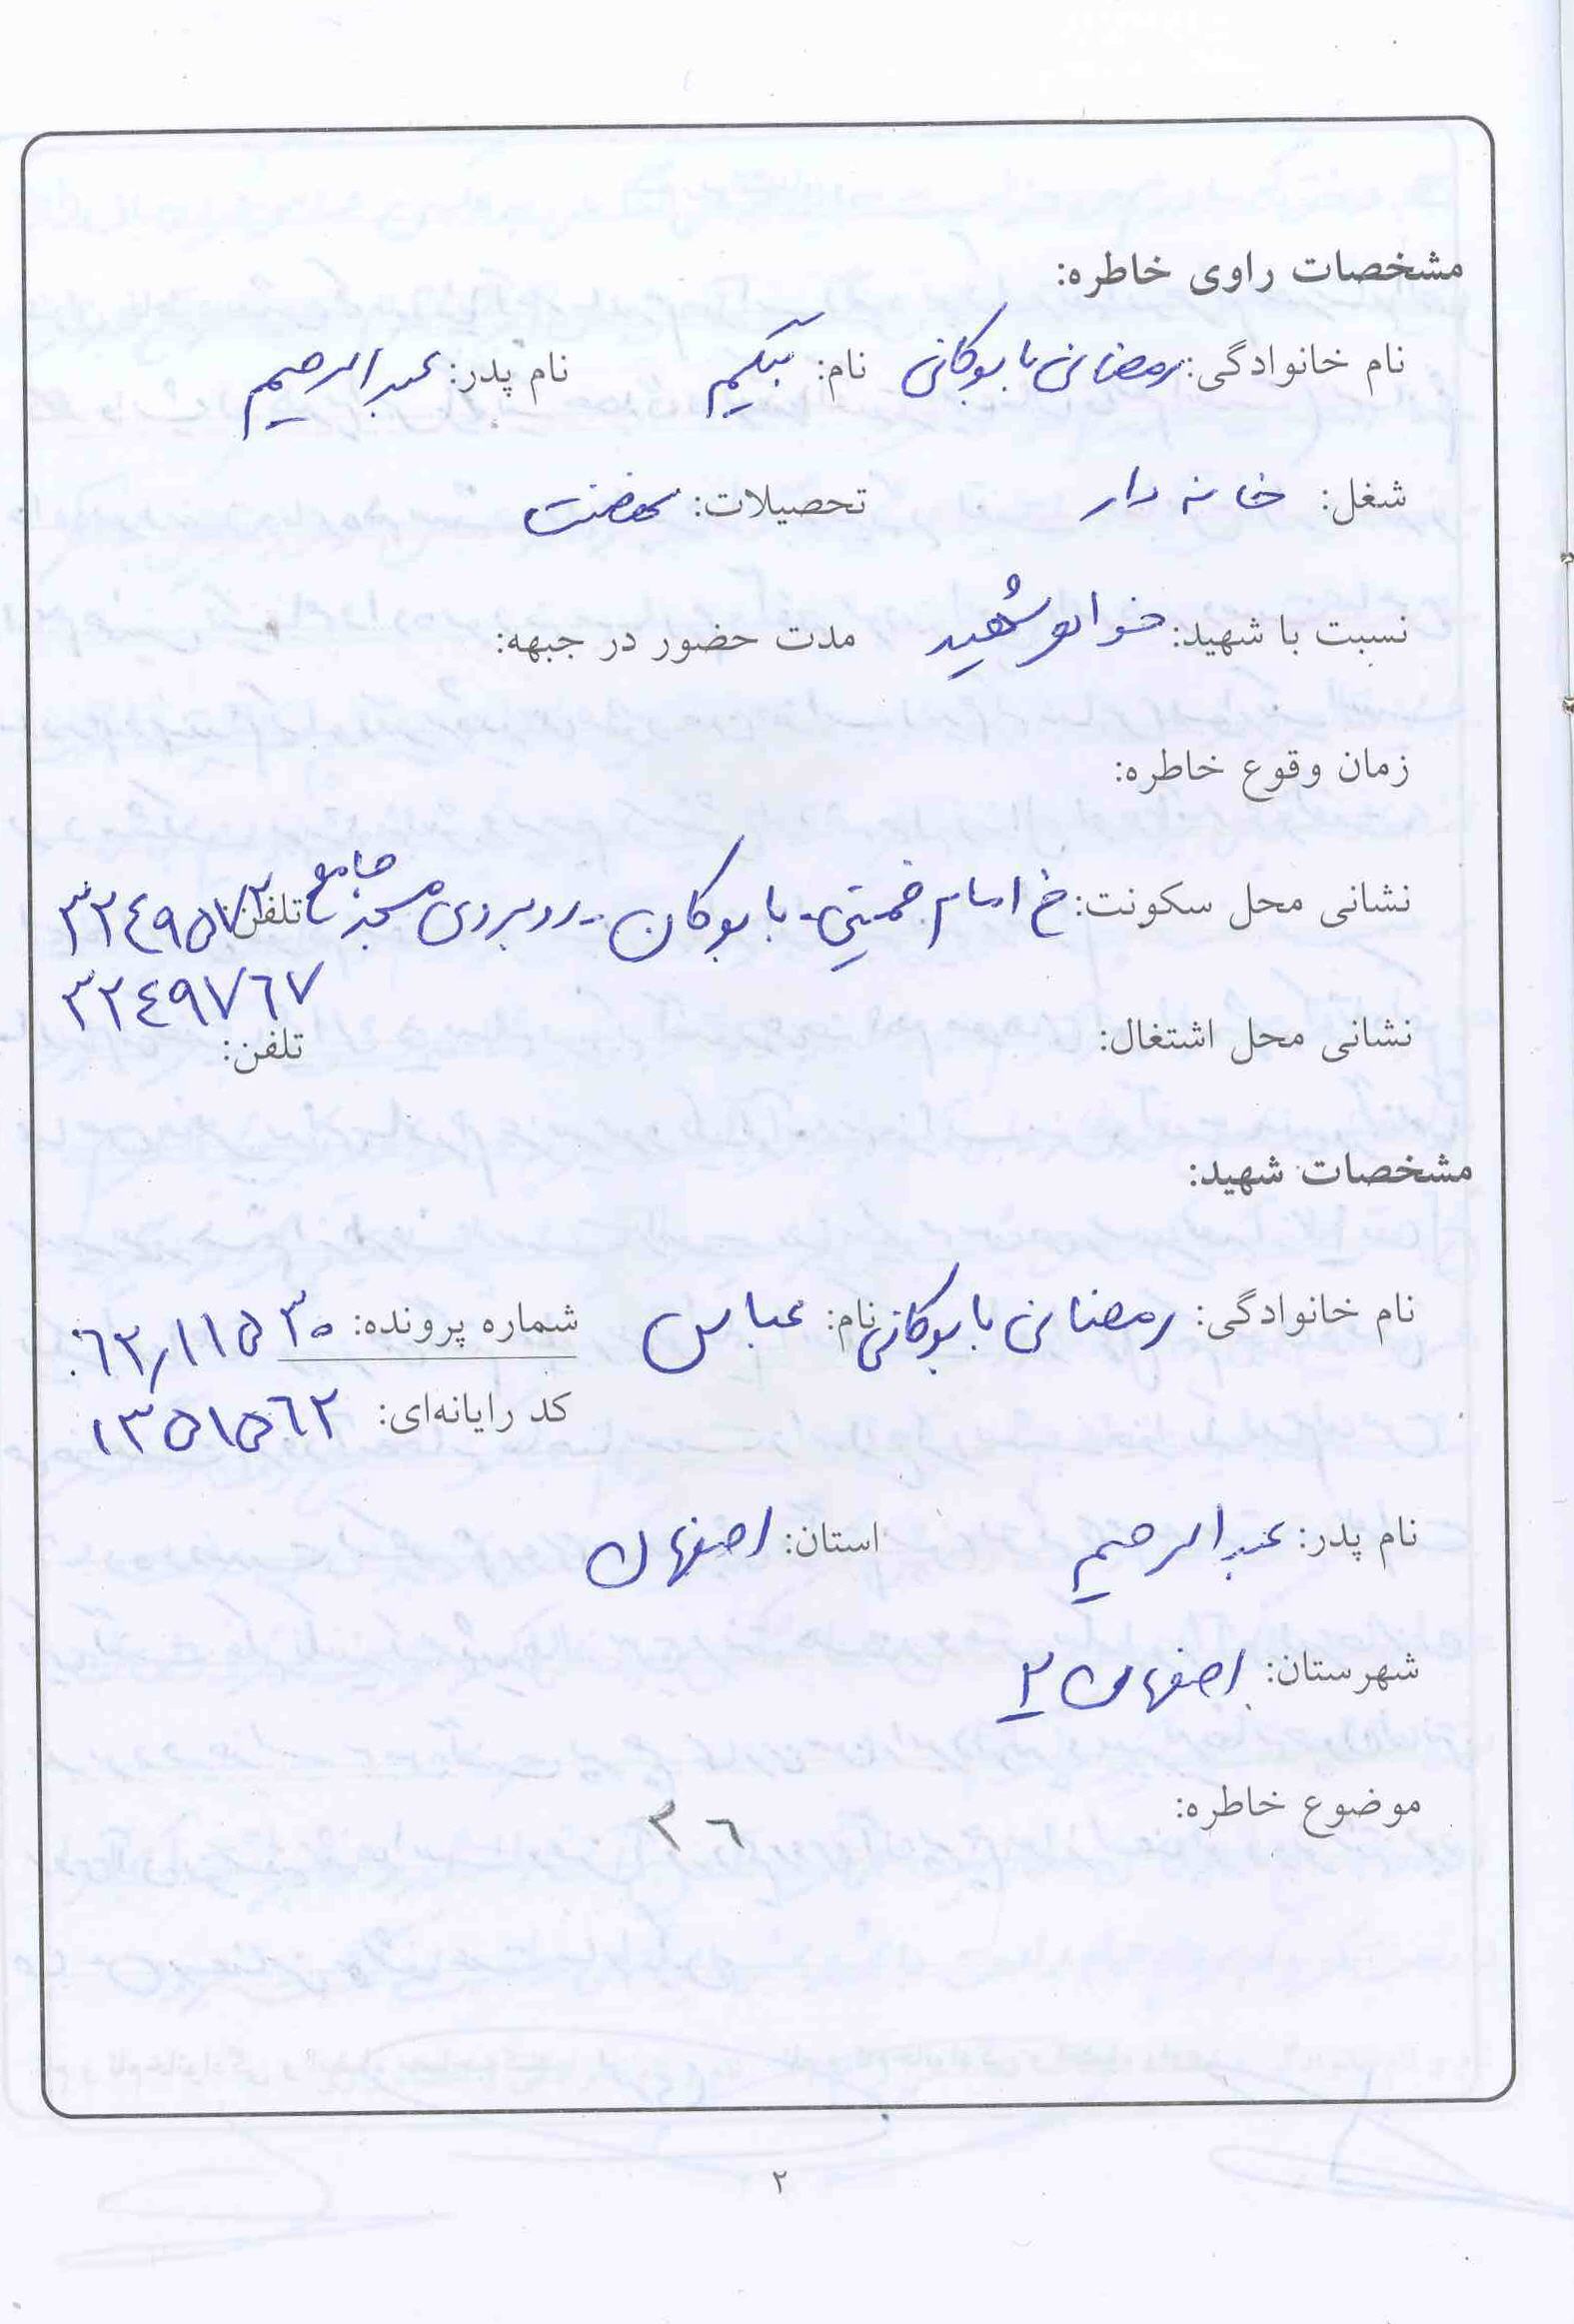 مشخصات راوی خاطره:
نام خانوادگی: رمضانی بابوکانی نام: بیگم نام پدر: عبدالرحیم
شغل: خانه دار تحصیلات: نهضت
نسبت با شهید: خواهر شهید مدت حضور در جبهه:
زمان وقوع خاطره:
نشانی محل سکونت: خ امام خمینی - بابوکان - روبروی مسجد جامع تلفن: ۳۲۴۹۵۷۲
۳۲۴۹۷۶۷
نشانی محل اشتغال: تلفن:
مشخصات شهید:
نام خانوادگی: رمضانی بابوکانی نام: عباس شماره پرونده: ۶۲,۱۱۵۳۰
کد رایانه‌ای: ۱۳۵۱۵۶۲
نام پدر: عبدالرحیم استان: اصفهان
شهرستان: اصفهان ۲
موضوع خاطره: ۳۶
۲